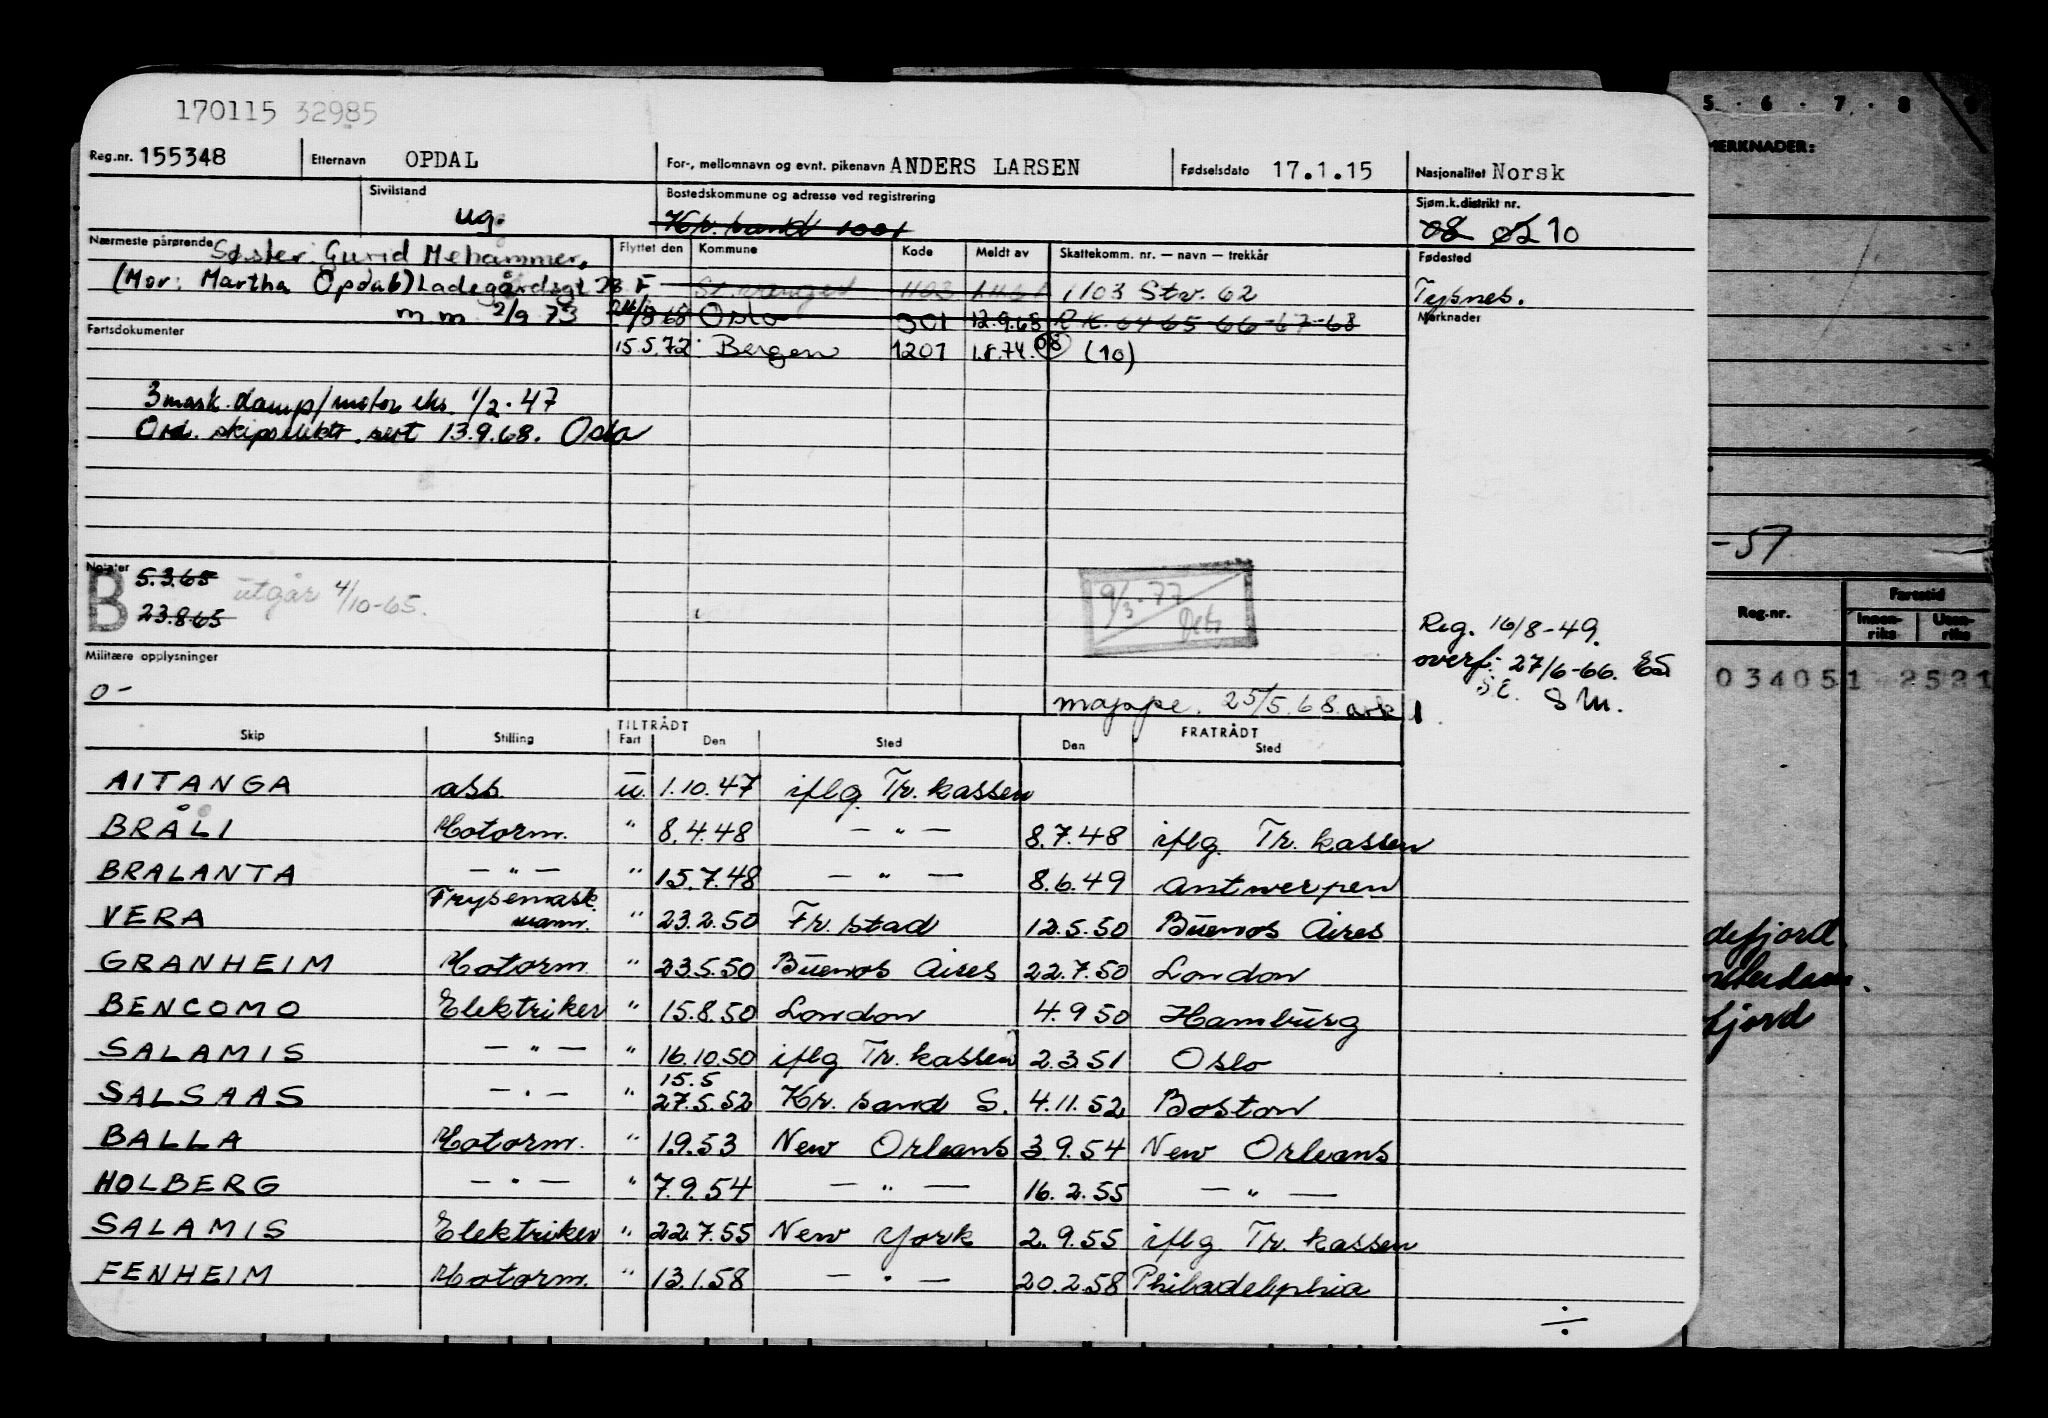 170115 32985
Reg.nr. 155348 Etternavn OPDAL For-, mellomnavn og evnt. pikenavn ANDERS LARSEN Fødselsdato 17.1.15 Nasjonalitet Norsk
Sivilstand ug. Bostedskommune og adresse ved registrering Kr. sand 1001 Sjøm.k.distrikt nr. 08 02 10
Nærmeste pårørende Søster: Gurid Mehammer, Flyttet den Kommune Kode Meldt av Skattekomm. nr. — navn — trekkår Fødested
(Mor: Martha Opdal) Ladegårdsgt 78. F Stavanger 1103 1103 Stv. 62 Tysnes.
m.m 2/9 73 24/8 68 Oslo 301 12.9.68 R K. 64-65-66-67-68 Merknader
Fartsdokumenter 15.5.72 Bergen 1201 1.8.74. 08 (10)
3 mask. damp/motor eks. 1/2-47
Ord. skipselektr. sert 13.9.68. Oslo
Notater
B 5.3.65 utgår 4/10-65.
23.8.65
9/3-77
Reg. 16/8-49.
overf: 27/6-66. ES
SE. SM.
Militære opplysninger
0-
mappe. 25/5.68 ark 1
Skip Stilling TILTRÅDT Fart Den Sted FRATRÅDT Den Sted
AITANGA ass. u. 1.10.47 iflg Tr. kassen
BRÅLI Motorm. " 8.4.48 — " — 8.7.48 iflg Tr. kassen
BRALANTA — " — " 15.7.48 — " — 8.6.49 Antwerpen
VERA Frysemask.mann. " 23.2.50 Fr.stad 12.5.50 Buenos Aires
GRANHEIM Motorm. " 23.5.50 Buenos Aires 22.7.50 London
BENCOMO Elektriker " 15.8.50 London 4.9.50 Hamburg
SALAMIS — " — " 16.10.50 iflg Tr. kassen 2.3.51 Oslo
15.5
SALSAAS — " — " 27.5.52 Kr. sand S. 4.11.52 Boston
BALLA Motorm. " 1.9.53 New Orleans 3.9.54 New Orleans
HOLBERG — " — " 7.9.54 — " — 16.2.55 — " —
SALAMIS Elektriker " 22.7.55 New York 2.9.55 iflg Tr. kassen
FENHEIM Motorm. " 13.1.58 — " — 20.2.58 Philadelphia
÷
5 · 6 · 7 · 8 9
MERKNADER:
-57
Reg.nr. Fartstid
Innen-riks Uten-riks
034051 2521
defjord.
fjord